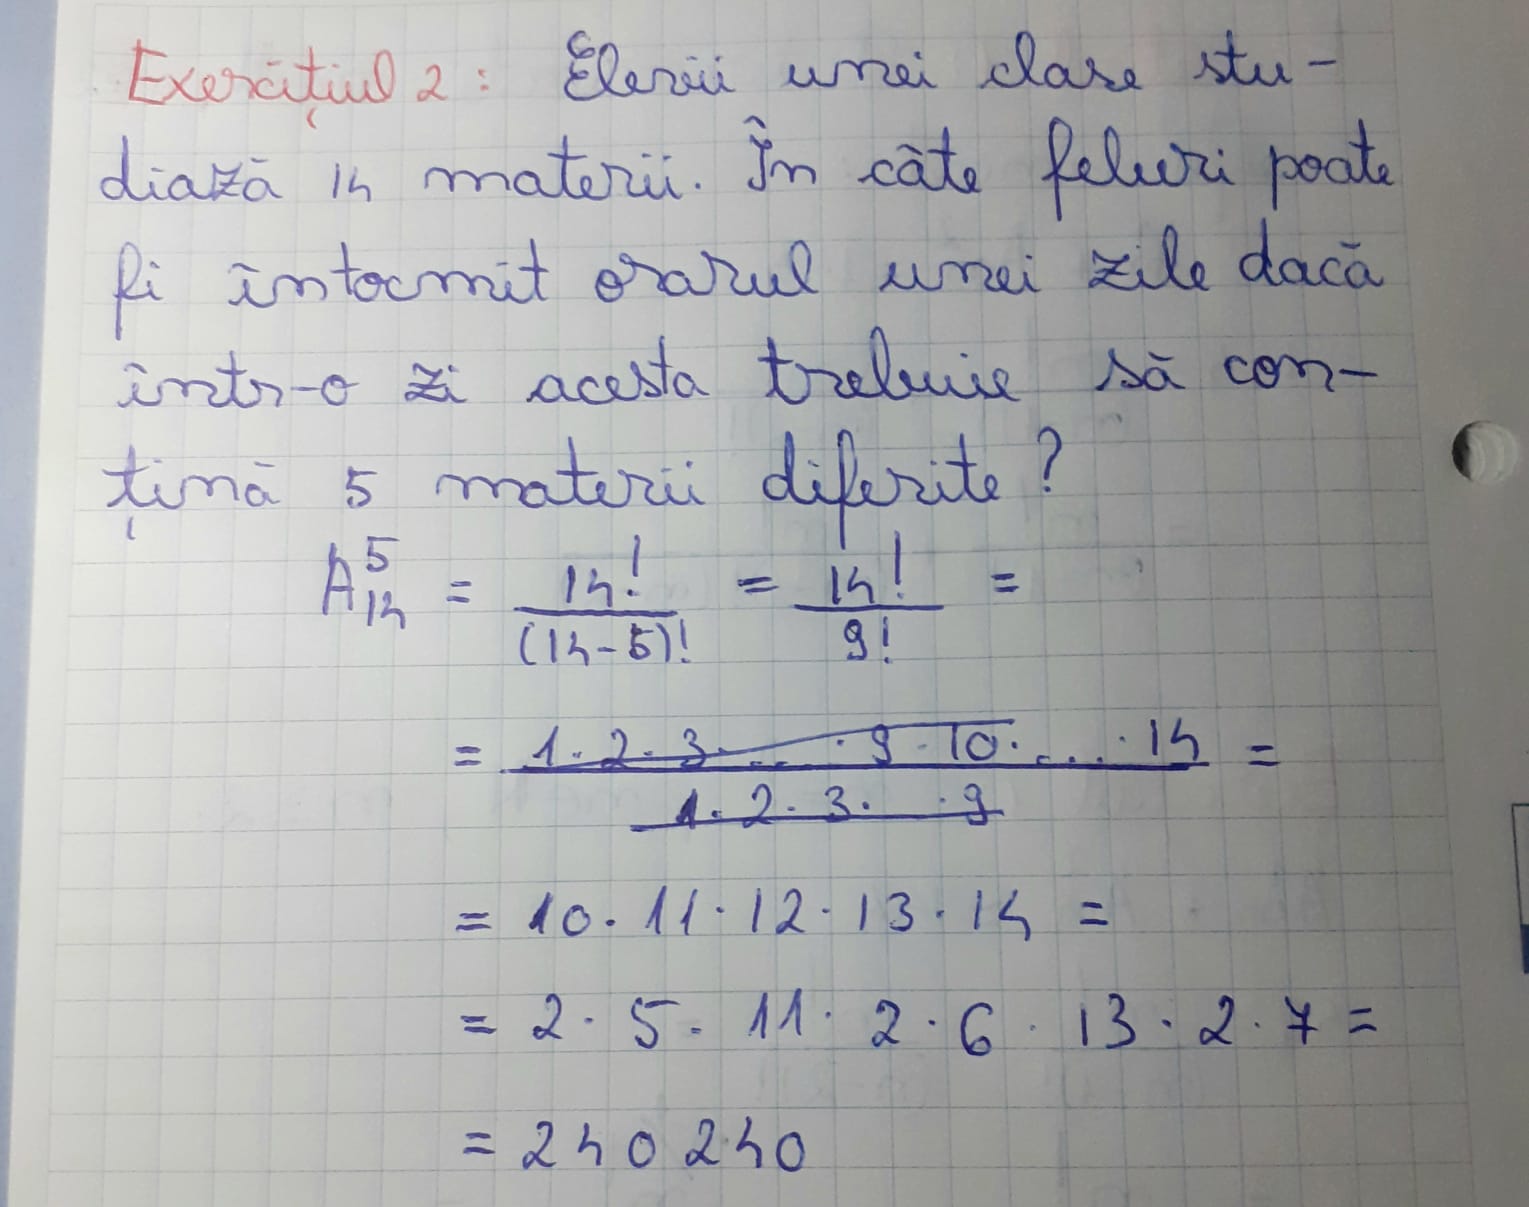 Exercițiul 2: Elevii unei clase stu-
diază 14 materii. În câte feluri poate
fi întocmit orarul unei zile dacă
într-o zi acesta trebuie să con-
țină 5 materii diferite?
A₁₄⁵ = 14!/(14-5)! = 14!/9! =
= 1·2·3·...·9·10·...·14 / 1·2·3· ·9 =
= 10·11·12·13·14 =
= 2·5·11·2·6·13·2·7 =
= 240 240